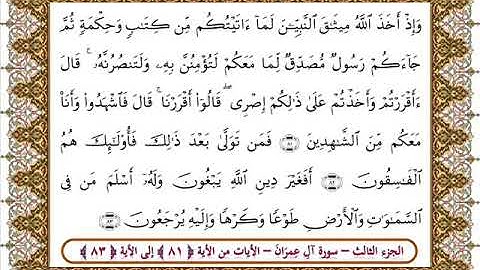 وَإِذْ أَخَذَ ٱللَّهُ مِيثَٰقَ ٱلنَّبِيِّـۧنَ لَمَآ ءَاتَيْتُكُم مِّن كِتَٰبٍ وَحِكْمَةٍ ثُمَّ
جَآءَكُمْ رَسُولٌ مُّصَدِّقٌ لِّمَا مَعَكُمْ لَتُؤْمِنُنَّ بِهِۦ وَلَتَنصُرُنَّهُۥ ۚ قَالَ
ءَأَقْرَرْتُمْ وَأَخَذْتُمْ عَلَىٰ ذَٰلِكُمْ إِصْرِى ۖ قَالُوٓا۟ أَقْرَرْنَا ۚ قَالَ فَٱشْهَدُوا۟ وَأَنَا۠
مَعَكُم مِّنَ ٱلشَّٰهِدِينَ ۝٨١ فَمَن تَوَلَّىٰ بَعْدَ ذَٰلِكَ فَأُو۟لَٰٓئِكَ هُمُ
ٱلْفَٰسِقُونَ ۝٨٢ أَفَغَيْرَ دِينِ ٱللَّهِ يَبْغُونَ وَلَهُۥٓ أَسْلَمَ مَن فِى
ٱلسَّمَٰوَٰتِ وَٱلْأَرْضِ طَوْعًا وَكَرْهًا وَإِلَيْهِ يُرْجَعُونَ ۝٨٣
الجزء الثالث – سورة آلِ عِمرَان – الآيات من الآية ( ٨١ ) إلى الآية ( ٨٣ )